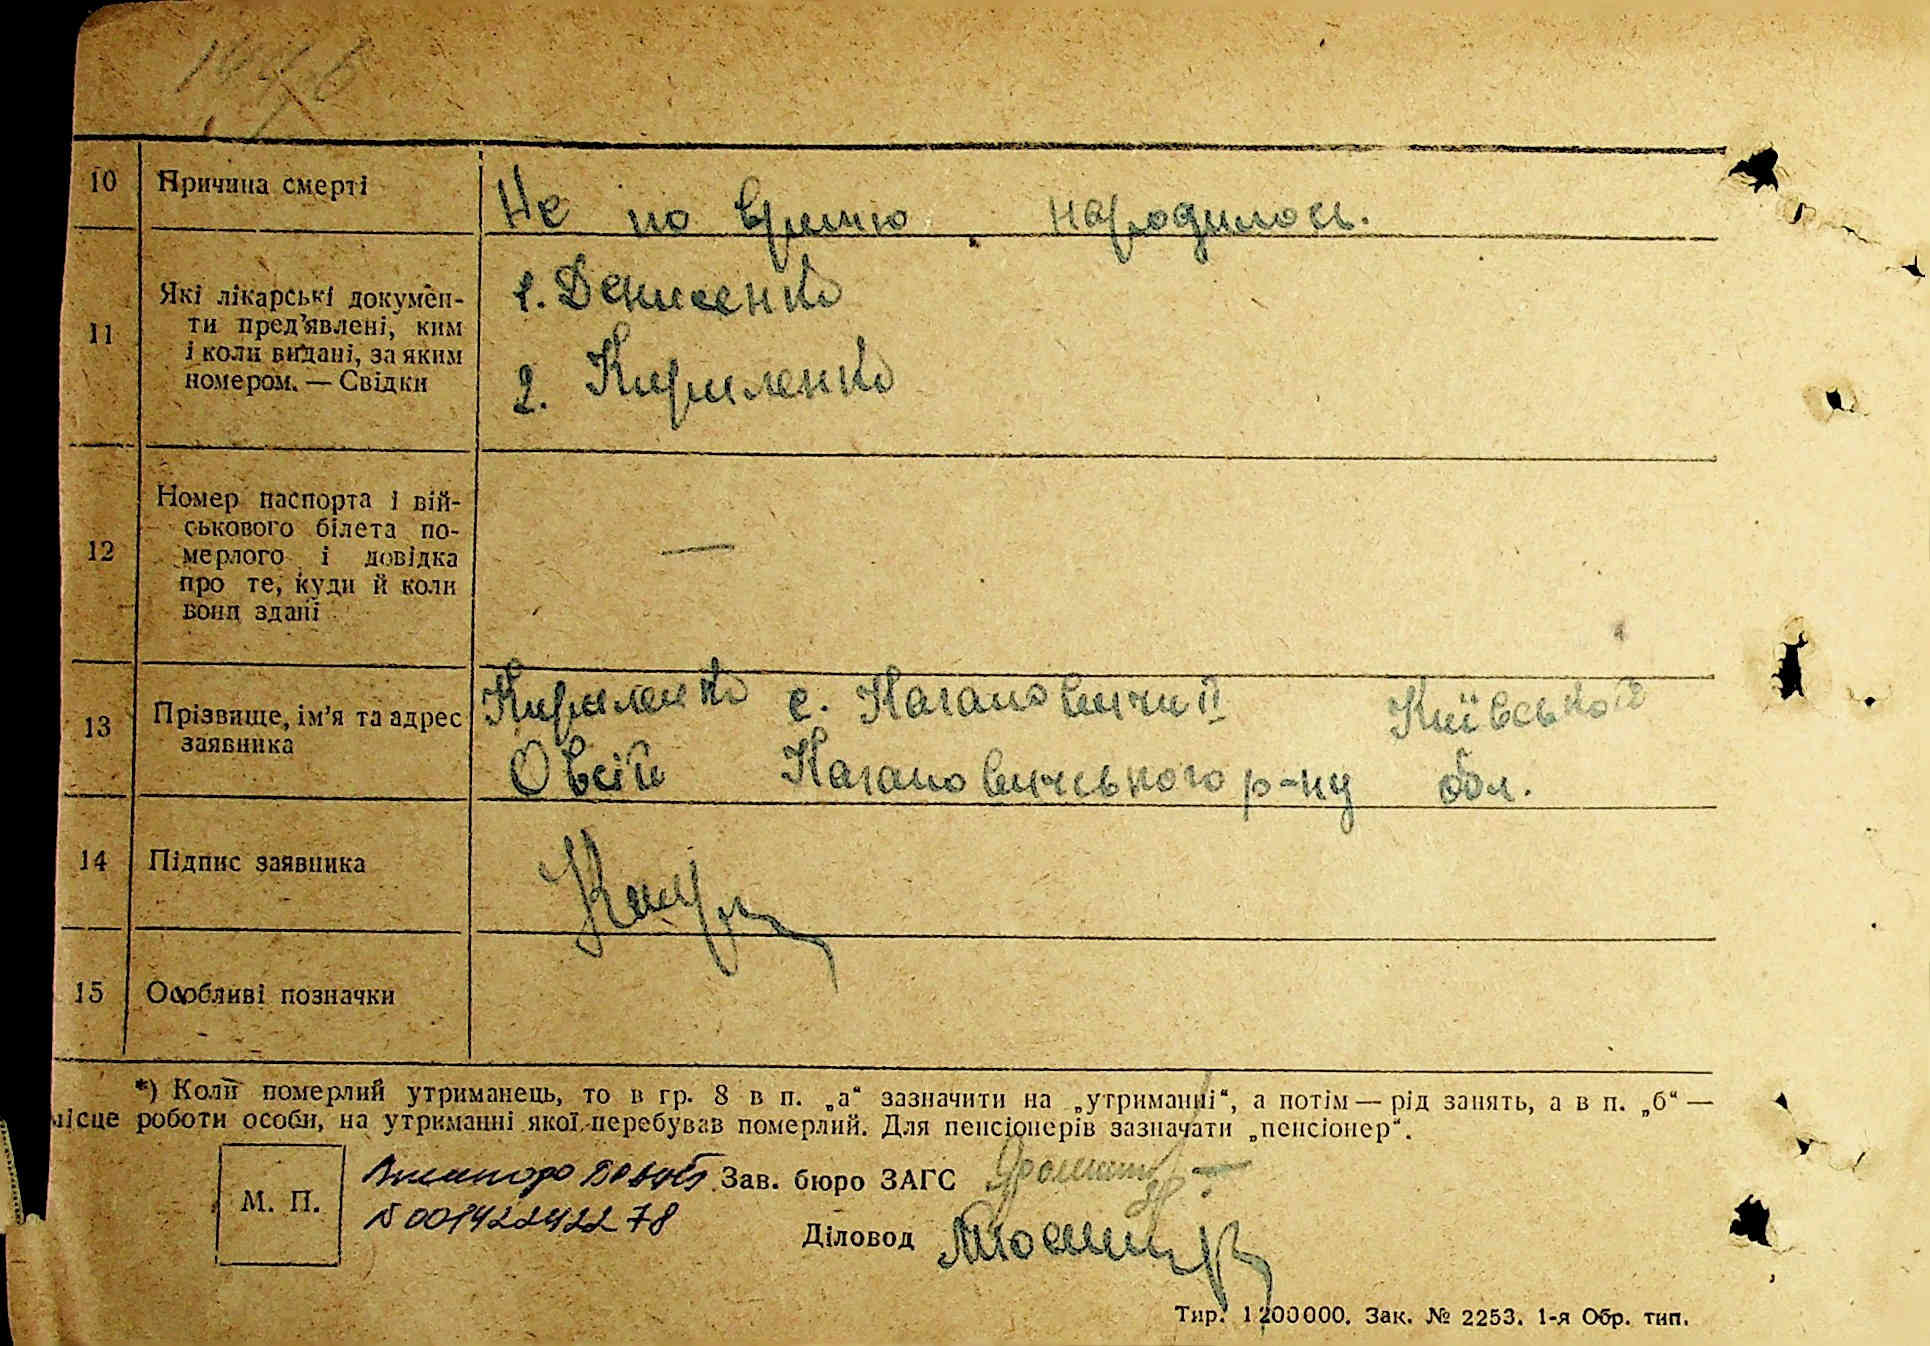 10 Причина смерті Не по времю народилось.
11 Які лікарські докумен-
ти пред'явлені, ким
і коли видані, за яким
номером. — Свідки
1. Денисенко
2. Кириленко
12 Номер паспорта і вій-
ськового білета по-
мерлого і довідка
про те, куди й коли
вони здані
—
13 Прізвище, ім'я та адрес
заявника
Кириленко с. Кагановичи II Київської
Овсій Кагановичського р-ну обл.
14 Підпис заявника
15 Особливі позначки
*) Коли померлий утриманець, то в гр. 8 в п. „а“ зазначити на „утриманні“, а потім — рід занять, а в п. „б“ —
місце роботи особи, на утриманні якої перебував померлий. Для пенсіонерів зазначати „пенсіонер“.
М. П.
Зав. бюро ЗАГС
№ 00142242278
Діловод
Тир. 1200000. Зак. № 2253. 1-я Обр. тип.